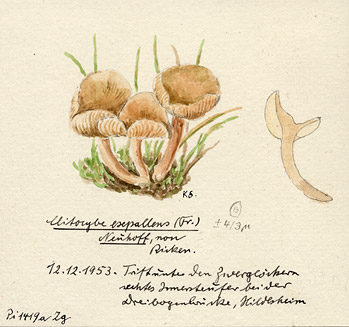 K S.
Clitocybe expallens (Fr.)
Neuhoff, non
Ricken.
± 4/3 µ
12.12.1953. Triftunte den Zwerglöchern
rechts Innersteufer bei der
Dreibogenbrücke, Hildesheim
Pi 1419a Zg